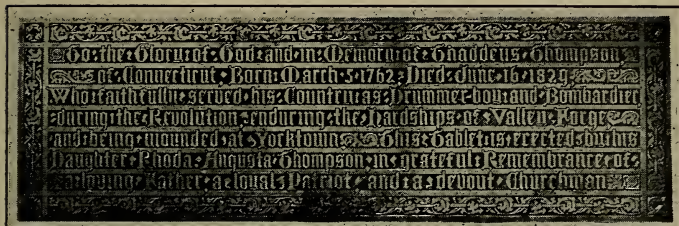 To the Glory of God and in Memory of Thaddeus Thompson
of Connecticut Born March 5 1762 Died June 16 1829
Who faithfully served his Country as Drummer-boy and Bombardier
during the Revolution enduring the Hardships of Valley Forge
and being wounded at Yorktown This Tablet is erected by his
Daughter Rhoda Augusta Thompson in grateful Remembrance of
a loving Father a loyal Patriot and a devout Churchman